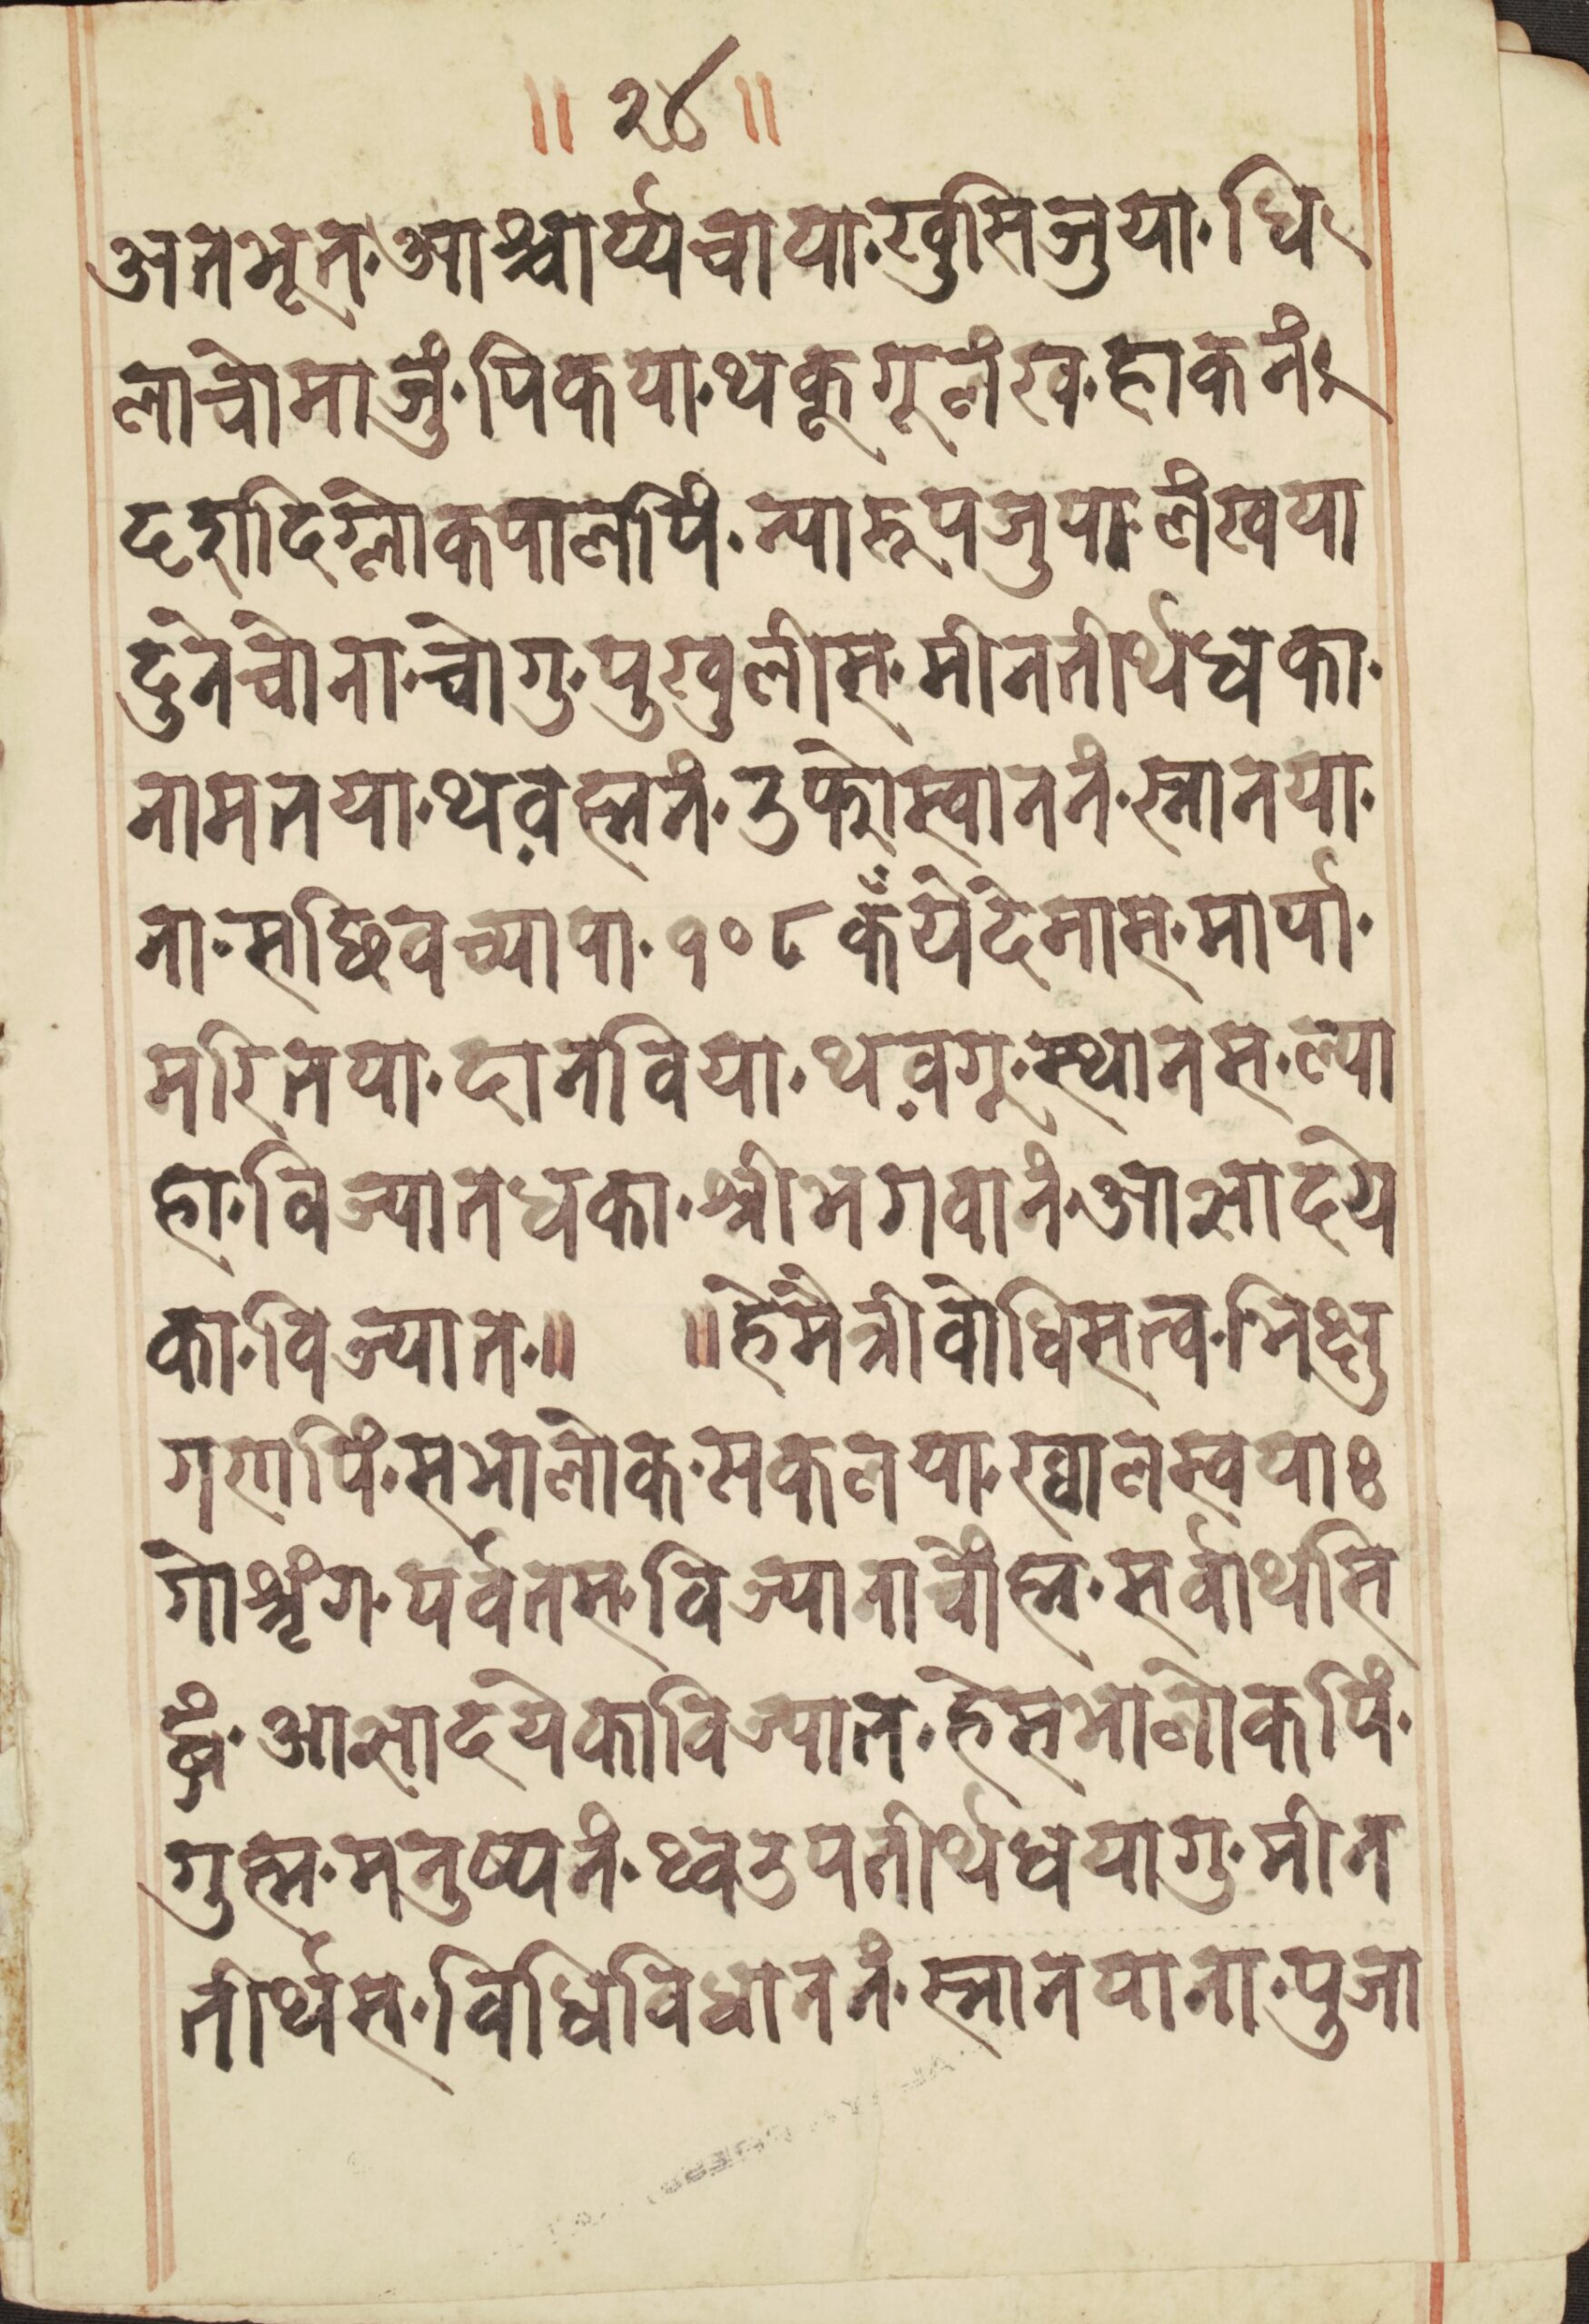 ॥ २४ ॥
अतभूत·आश्चार्य्यचाया·खुसिजुया·धि
लाचोमाजुं·पिकया·थकूगूलंख·हाकनं
दशदिग्लोकपालपिं·न्यारूपजुया·लंखया
दुनेचोना·चोगु·पुखुलीस·मीनतीर्थधका·
नामतया·थव़ह्मनं·उफोस्वाननं·स्नानयां·
ना·सछिवच्याया·१०८ कँयेदेमास·मार्या·
मरितया·दानविया·थव़गू·स्थानस·ल्या
हा·विज्यातधका·श्रीभगवानं·आज्ञादये
का·विज्यात·॥ ॥हेमैत्रीवोधिसत्व·भिक्षु
गणपिं·सभालोक·सकलया·ख्वालस्वयाः
गोश्रृंग·पर्वतस·विज्यानाचोंह्म·सर्वार्थसि
द्धनं·आज्ञादयेकाविज्यात·हेसभालोकपिं·
गुह्म·मनुष्यनं·थ्वउपतीर्थधयागु·मीन
तीर्थस·विधिविधाननं·स्नानयाना·पुजा